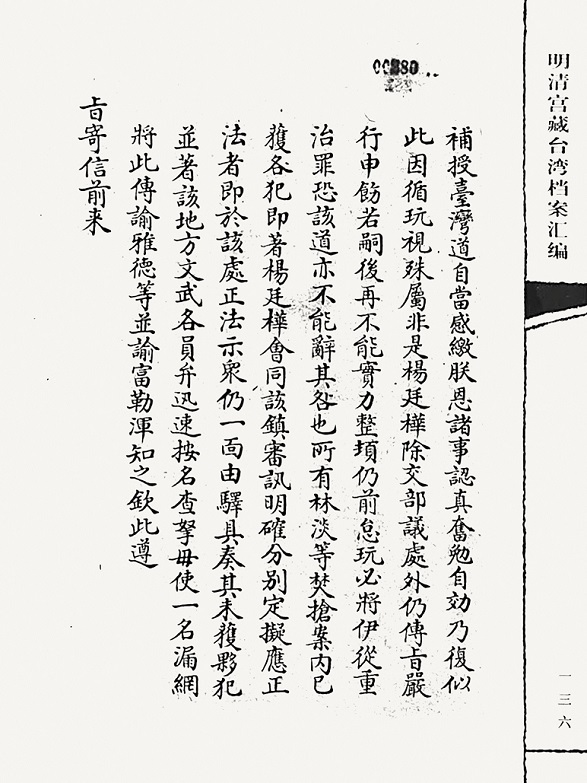 明清宫藏台湾档案汇编
補授臺灣道自當感緻朕恩諸事認真奮勉自効乃復似
此因循玩視殊屬非是楊廷樺除交部議處外仍傳旨嚴
行申飭若嗣後再不能實力整頓仍前怠玩必將伊從重
治罪恐該道亦不能辭其咎也所有林淡等焚搶案内已
獲各犯即著楊廷樺會同該鎮審訊明確分别定擬應正
法者即於該處正法示衆仍一面由驛具奏其未獲夥犯
並著該地方文武各員弁迅速按名查拏毋使一名漏網
將此傳諭雅德等並諭富勒渾知之欽此遵
旨寄信前来
一三六